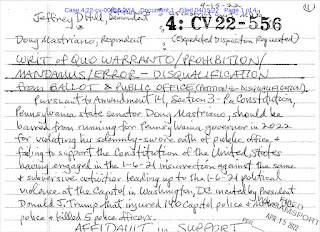 Case 4:22-cv-00556-MWB Document 1 Filed 04/15/22 Page 1 of 4
4-15-22
Jeffrey D Hill, Demandant
4: CV 22-556
Doug Mastriano, Respondent (Expedited Disposition Requested)
WRIT of QUO WARRANTO/PROHIBITION/
MANDAMUS/ERROR - DISQUALIFICATION
from BALLOT & PUBLIC OFFICE (PETITION for DISQUALIFICATION)
Pursuant to Amendment 14, Section 3 - Pa Constitution,
Pennsylvania state senator Doug Mastriano, should be
barred from running for Pennsylvania governor in 2022
for violating his solemnly-swore oath of public office &
failing to support the Constitution of the United States
having engaged in the 1-6-21 insurrection against the same
& subversive activities leading up to the 1-6-21 political
violence at the Capitol in Washington, DC incited by President
Donald J. Trump that injured 140 Capitol police &
police & killed 5 police officers.
WILLIAMSPORT
PER
APR 15 2022
AFFIDAVIT in SUPPORT